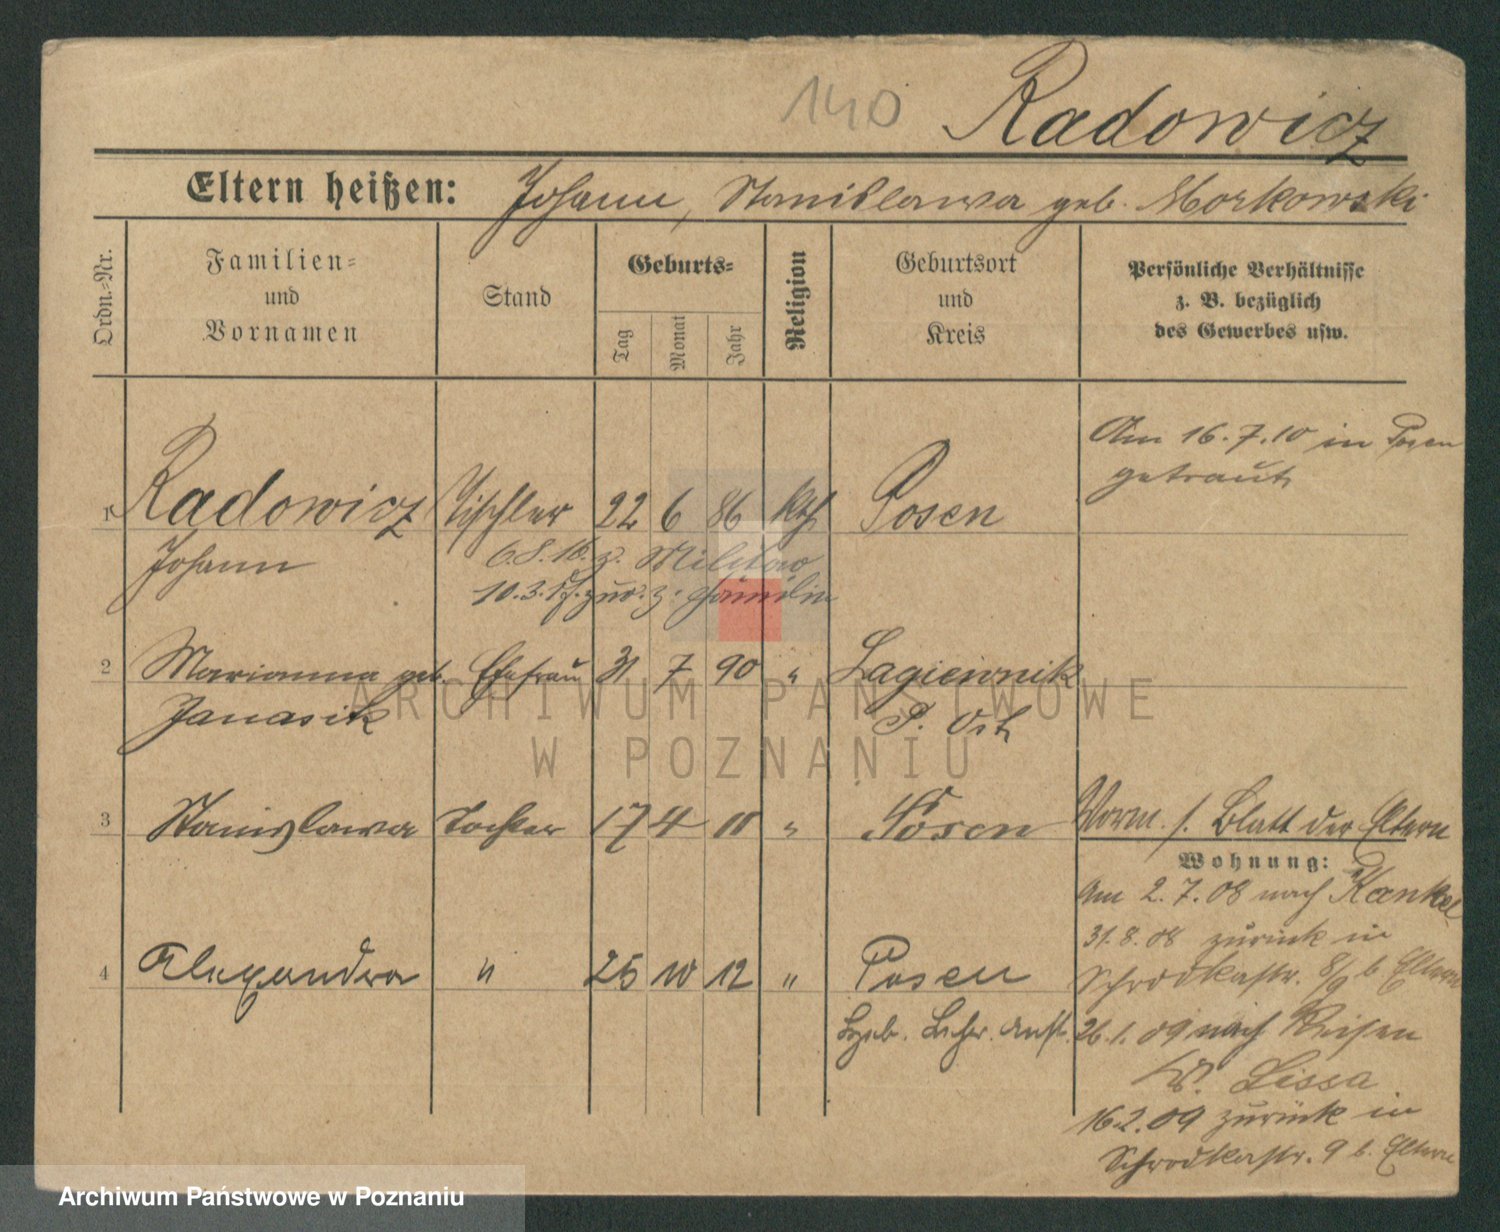 140 Radowicz
Eltern heißen: Johann, Stanislawa geb. Morkowski
Ordn.=Nr.
Familien=
und
Vornamen
Stand
Geburts=
Tag
Monat
Jahr
Religion
Geburtsort
und
Kreis
Persönliche Verhältnisse
z. B. bezüglich
des Gewerbes usw.
Am 16.7.10 in Posen
getraut
1 Radowicz Tischler 22 6 86 kth Posen
Johann
6.8.16. z. Militär
10.3.17. zur. z. Familie
2 Marianna geb. Ehefrau 31 7 90 " Lagiewnik
Janasik P. Ost
3 Stanislawa Tochter 17 4 11 " Posen
Vorm. s. Blatt der Eltern
Wohnung:
Am 2.7.08 nach Kankel
31.8.08 zurück in
Schrodkastr. 8/9 b Eltern
4 Alexandra " 25 10 12 " Posen
Hgeb. Lehr. Anst.
26.1.09 nach Reisen
Kr. Lissa
16.2.09 zurück in
Schrodkastr. 9 b. Eltern
ARCHIWUM PAŃSTWOWE
W POZNANIU
Archiwum Państwowe w Poznaniu